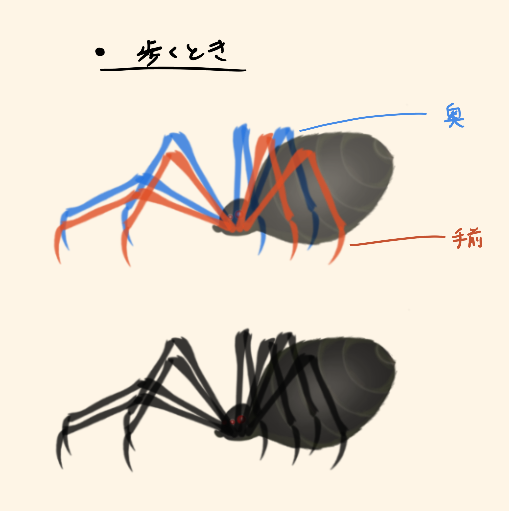 • 歩くとき
奥
手前